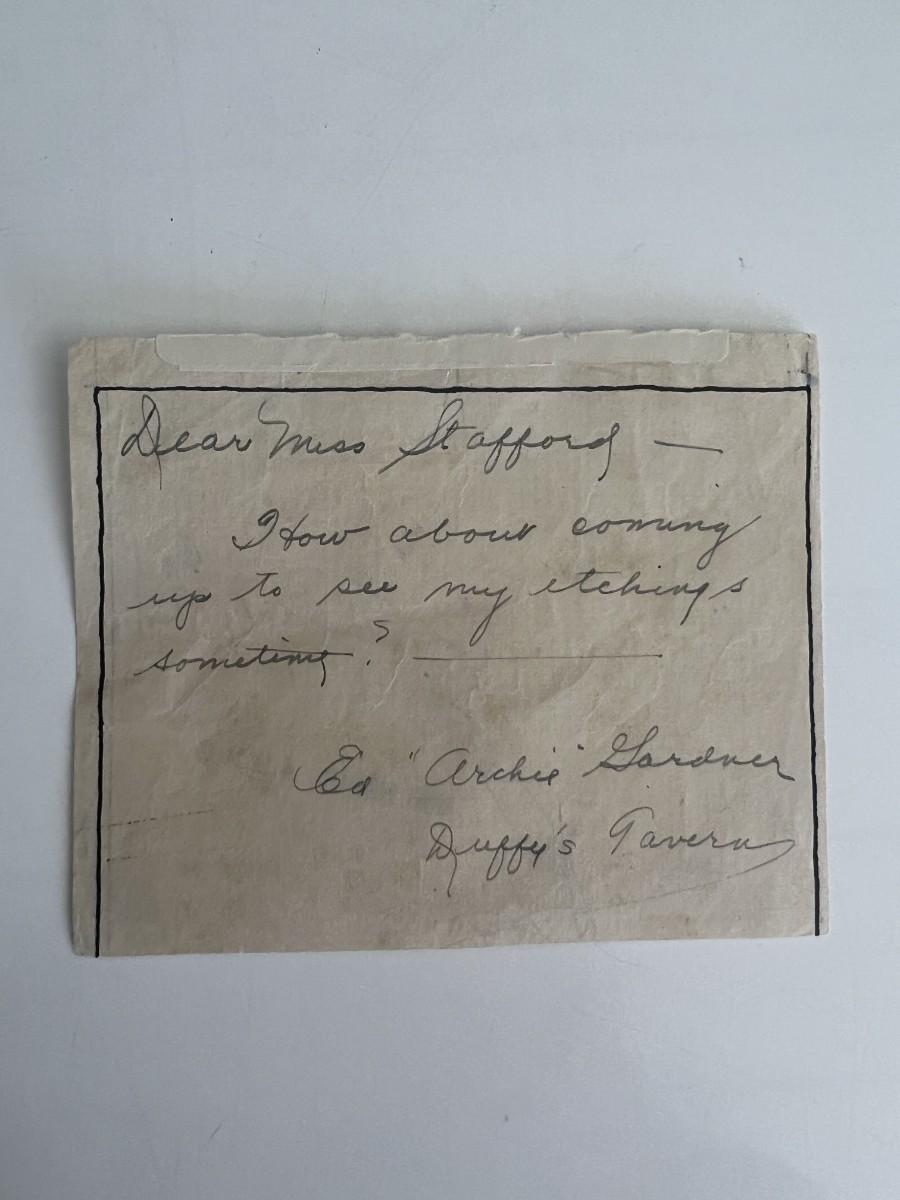 Dear Miss Stafford —
How about coming
up to see my etchings
sometime? —
Ed "Archie" Gardner
Duffy's Tavern